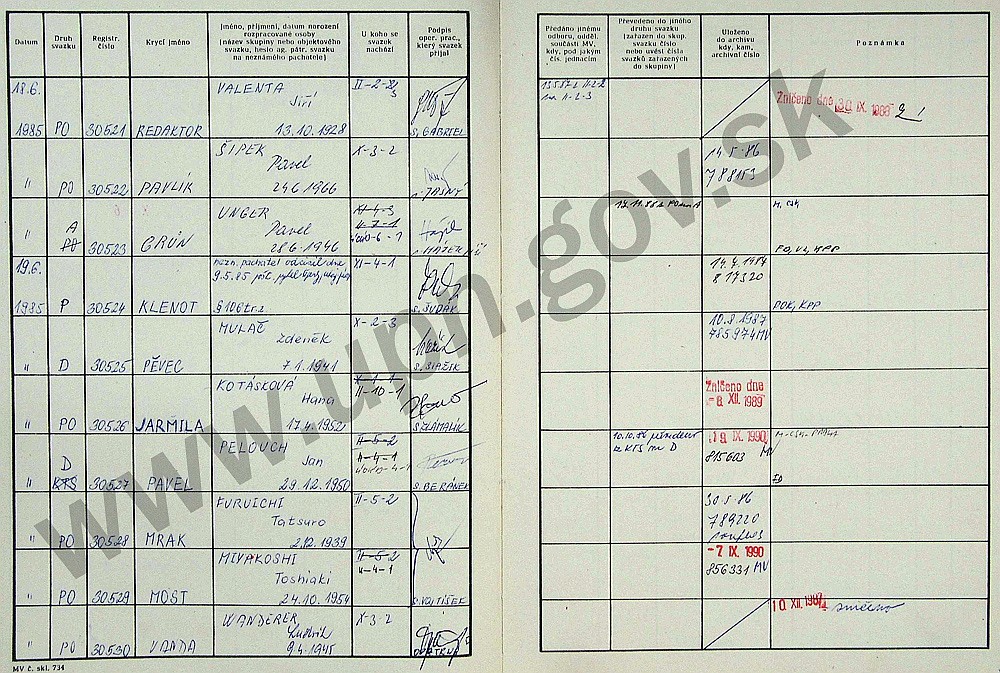 Datum
Druh svazku
Registr. číslo
Krycí jméno
Jméno, příjmení, datum narození rozpracované osoby (název skupiny nebo objektového svazku, heslo ag. pátr. svazku na neznámého pachatele)
U koho se svazek nachází
Podpis oper. prac., který svazek přijal
Předáno jinému odboru, odděl. součásti MV, kdy, pod jakým čís. jednacím
Převedeno do jiného druhu svazku (zařazen do skup. svazku číslo nebo uvést čísla svazků zařazených do skupiny)
Uloženo do archivu kdy, kam, archivní číslo
Poznámka
18.6. VALENTA II-2-2
Jiří 3
1985 PO 30521 REDAKTOR 13.10.1928 s. GABRIEL
II-2-3
Zničeno dne 30. IX. 1986
ŠIPEK X-3-2
Pavel
" PO 30522 PAVLÍK 24.6.1966 TÁSNÝ
14.5.86
788153
UNGER XI-4-3
A Pavel II-7-1
" PO 30523 GRÜN 28.6.1946
17.11.86
19.6. nezn. pachatel XI-4-1
9.5.85
1985 P 30524 KLENOT § 106 tr.z. s. ŠUDÁK
14.4.1987
817320
MULAČ X-2-3
Zdeněk
" D 30525 PĚVEC 7.1.1941
10.8.1987
785974 MV
KOTÁSKOVÁ X-1-1
Hana II-10-1
" PO 30526 JARMILA 17.4.1952
Zničeno dne
-8. XII. 1989
PELOUCH II-5-2
D Jan II-4-1
" KTS 30527 PAVEL 29.12.1950 s. BERÁNEK
10.10.86
KTS na D
19. IX. 1990
815603 MV
FURUICHI II-5-2
Tatsuro
" PO 30528 MRAK 2.12.1939
30.5.86
789220
MIYAKOSHI II-5-2
Toshiaki II-4-1
" PO 30529 MOST 24.10.1954 s. VOJTÍŠEK
-7. IX. 1990
856331 MV
WANDERER X-3-2
Ludvík
" PO 30530 VANDA 9.4.1945
10. XII. 1987 zničeno
MV č. skl. 734
www.upn.gov.sk